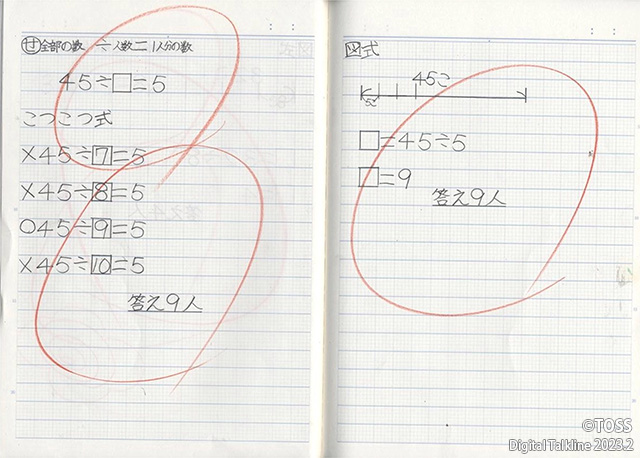 せ 全部の数 ÷ 人数 = 1人分の数
45÷□=5
こつこつ式
×45÷7=5
×45÷8=5
○45÷9=5
×45÷10=5
答え9人
図式
45こ
5こ
□=45÷5
□=9
答え9人
©TOSS
Digital Talkline 2023.2